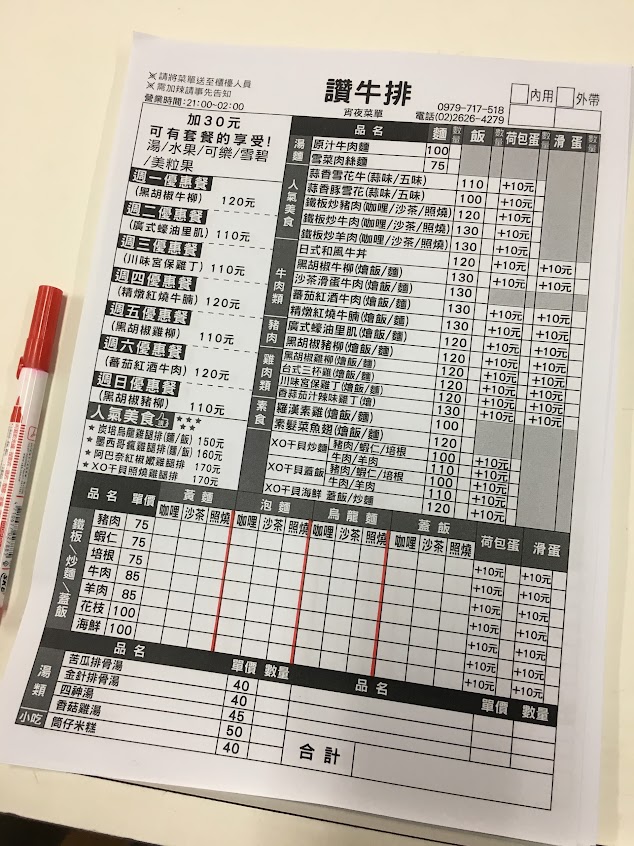 ※請將菜單送至櫃檯人員
※需加辣請事先告知
營業時間:21:00~02:00
讚牛排
宵夜菜單
0979-717-518
電話(02)2626-4279
內用 外帶
加30元
可有套餐的享受!
湯/水果/可樂/雪碧
/美粒果
週一優惠餐
(黑胡椒牛柳) 120元
週二優惠餐
(廣式蠔油里肌) 110元
週三優惠餐
(川味宮保雞丁) 110元
週四優惠餐
(精燉紅燒牛腩) 120元
週五優惠餐
(黑胡椒雞柳) 110元
週六優惠餐
(蕃茄紅酒牛肉) 120元
週日優惠餐
(黑胡椒豬柳) 110元
人氣美食
★炭培烏龍雞腿排(麵/飯) 150元
★墨西哥瘋雞腿排(麵/飯) 160元
★阿巴奈紅椒嫩雞腿排 170元
★XO干貝照燒雞腿排 170元
品名 麵 數量 飯 數量 荷包蛋 數量 滑蛋 數量
湯麵
原汁牛肉麵 100
雪菜肉絲麵 75
人氣美食
蒜香雪花牛(蒜味/五味) 110 +10元
蒜香豚雪花(蒜味/五味) 100 +10元
鐵板炒豬肉(咖哩/沙茶/照燒) 120 +10元
鐵板炒牛肉(咖哩/沙茶/照燒) 130 +10元
鐵板炒羊肉(咖哩/沙茶/照燒) 130 +10元
牛肉類
日式和風牛丼 120
黑胡椒牛柳(燴飯/麵) 120
沙茶滑蛋牛肉(燴飯/麵) 130
蕃茄紅酒牛肉(燴飯/麵) 130
精燉紅燒牛腩(燴飯/麵) 130
豬肉
廣式蠔油里肌(燴飯/麵) 120
黑胡椒豬柳(燴飯/麵) 120
雞肉類
黑胡椒雞柳(燴飯/麵) 120
台式三杯雞(燴飯/麵) 120
川味宮保雞丁(燴飯) 120
香蒜茄汁辣味雞丁(燴)
素食
羅漢素雞(燴飯/麵) 100
素髮菜魚翅(燴飯/麵) 120
XO干貝炒麵 豬肉/蝦仁/培根 100
牛肉/羊肉 110
XO干貝蓋飯 豬肉/蝦仁/培根 100
牛肉/羊肉 110
XO干貝海鮮 蓋飯/炒麵 120
品名 單價 黃麵 泡麵 烏龍麵 蓋飯 荷包蛋 滑蛋
咖哩 沙茶 照燒 咖哩 沙茶 照燒 咖哩 沙茶 照燒 咖哩 沙茶 照燒
鐵板/炒麵/蓋飯
豬肉 75 +10元 +10元
蝦仁 75 +10元 +10元
培根 75 +10元 +10元
牛肉 85 +10元 +10元
羊肉 85 +10元 +10元
花枝 100 +10元 +10元
海鮮 100 +10元 +10元
品名 單價 數量 品名 單價 數量
湯類
苦瓜排骨湯 40
金針排骨湯 40
四神湯 45
香菇雞湯 50
小吃
筒仔米糕 40
合計